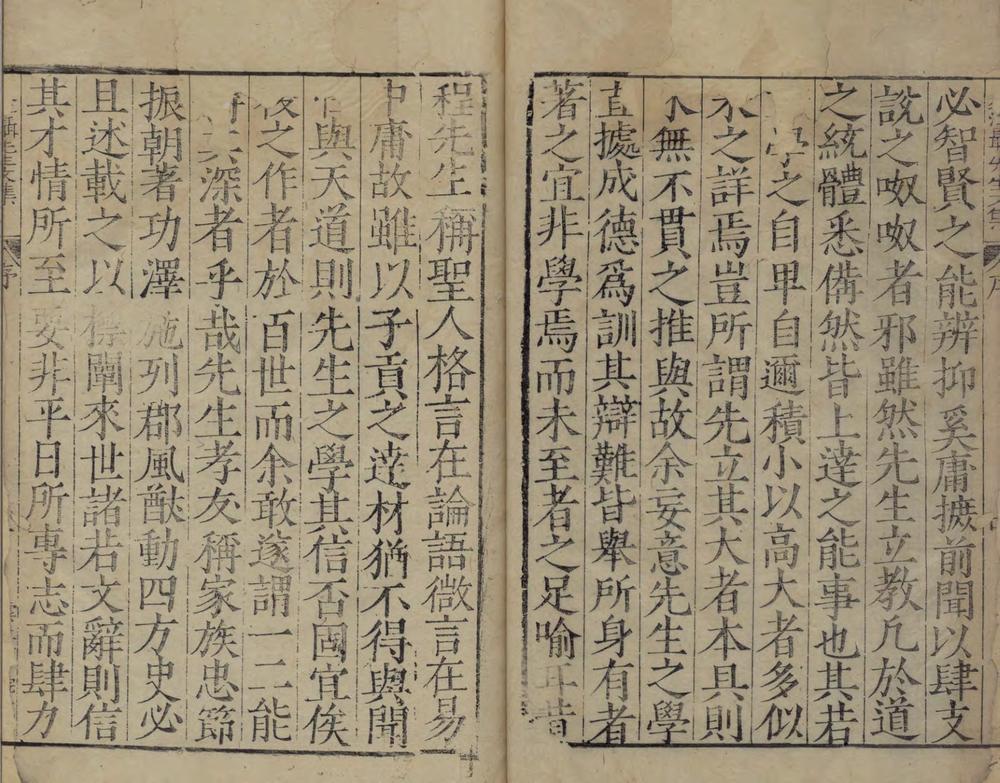 必智賢之能辨抑奚庸摭前聞以肆支
說之呶呶者邪雖然先生立教凡於道
之統體悉備然皆上達之能事也其若
學之自卑自邇積小以高大者多似
未之詳焉豈所謂先立其大者本具則
小無不貫之推與故余妄意先生之學
直據成德爲訓其辯難皆舉所身有者
著之宜非學焉而未至者之足喻耳昔
程先生稱聖人格言在論語微言在易
中庸故雖以子貢之達材猶不得與聞
性與天道則先生之學其信否國宜俟
後之作者於百世而余敢遂謂一二能
深者乎哉先生孝友稱家族忠節
振朝著功澤施列郡風猷動四方史必
且述載之以標闡來世諸若文辭則信
其才情所至要非平日所專志而肆力
序